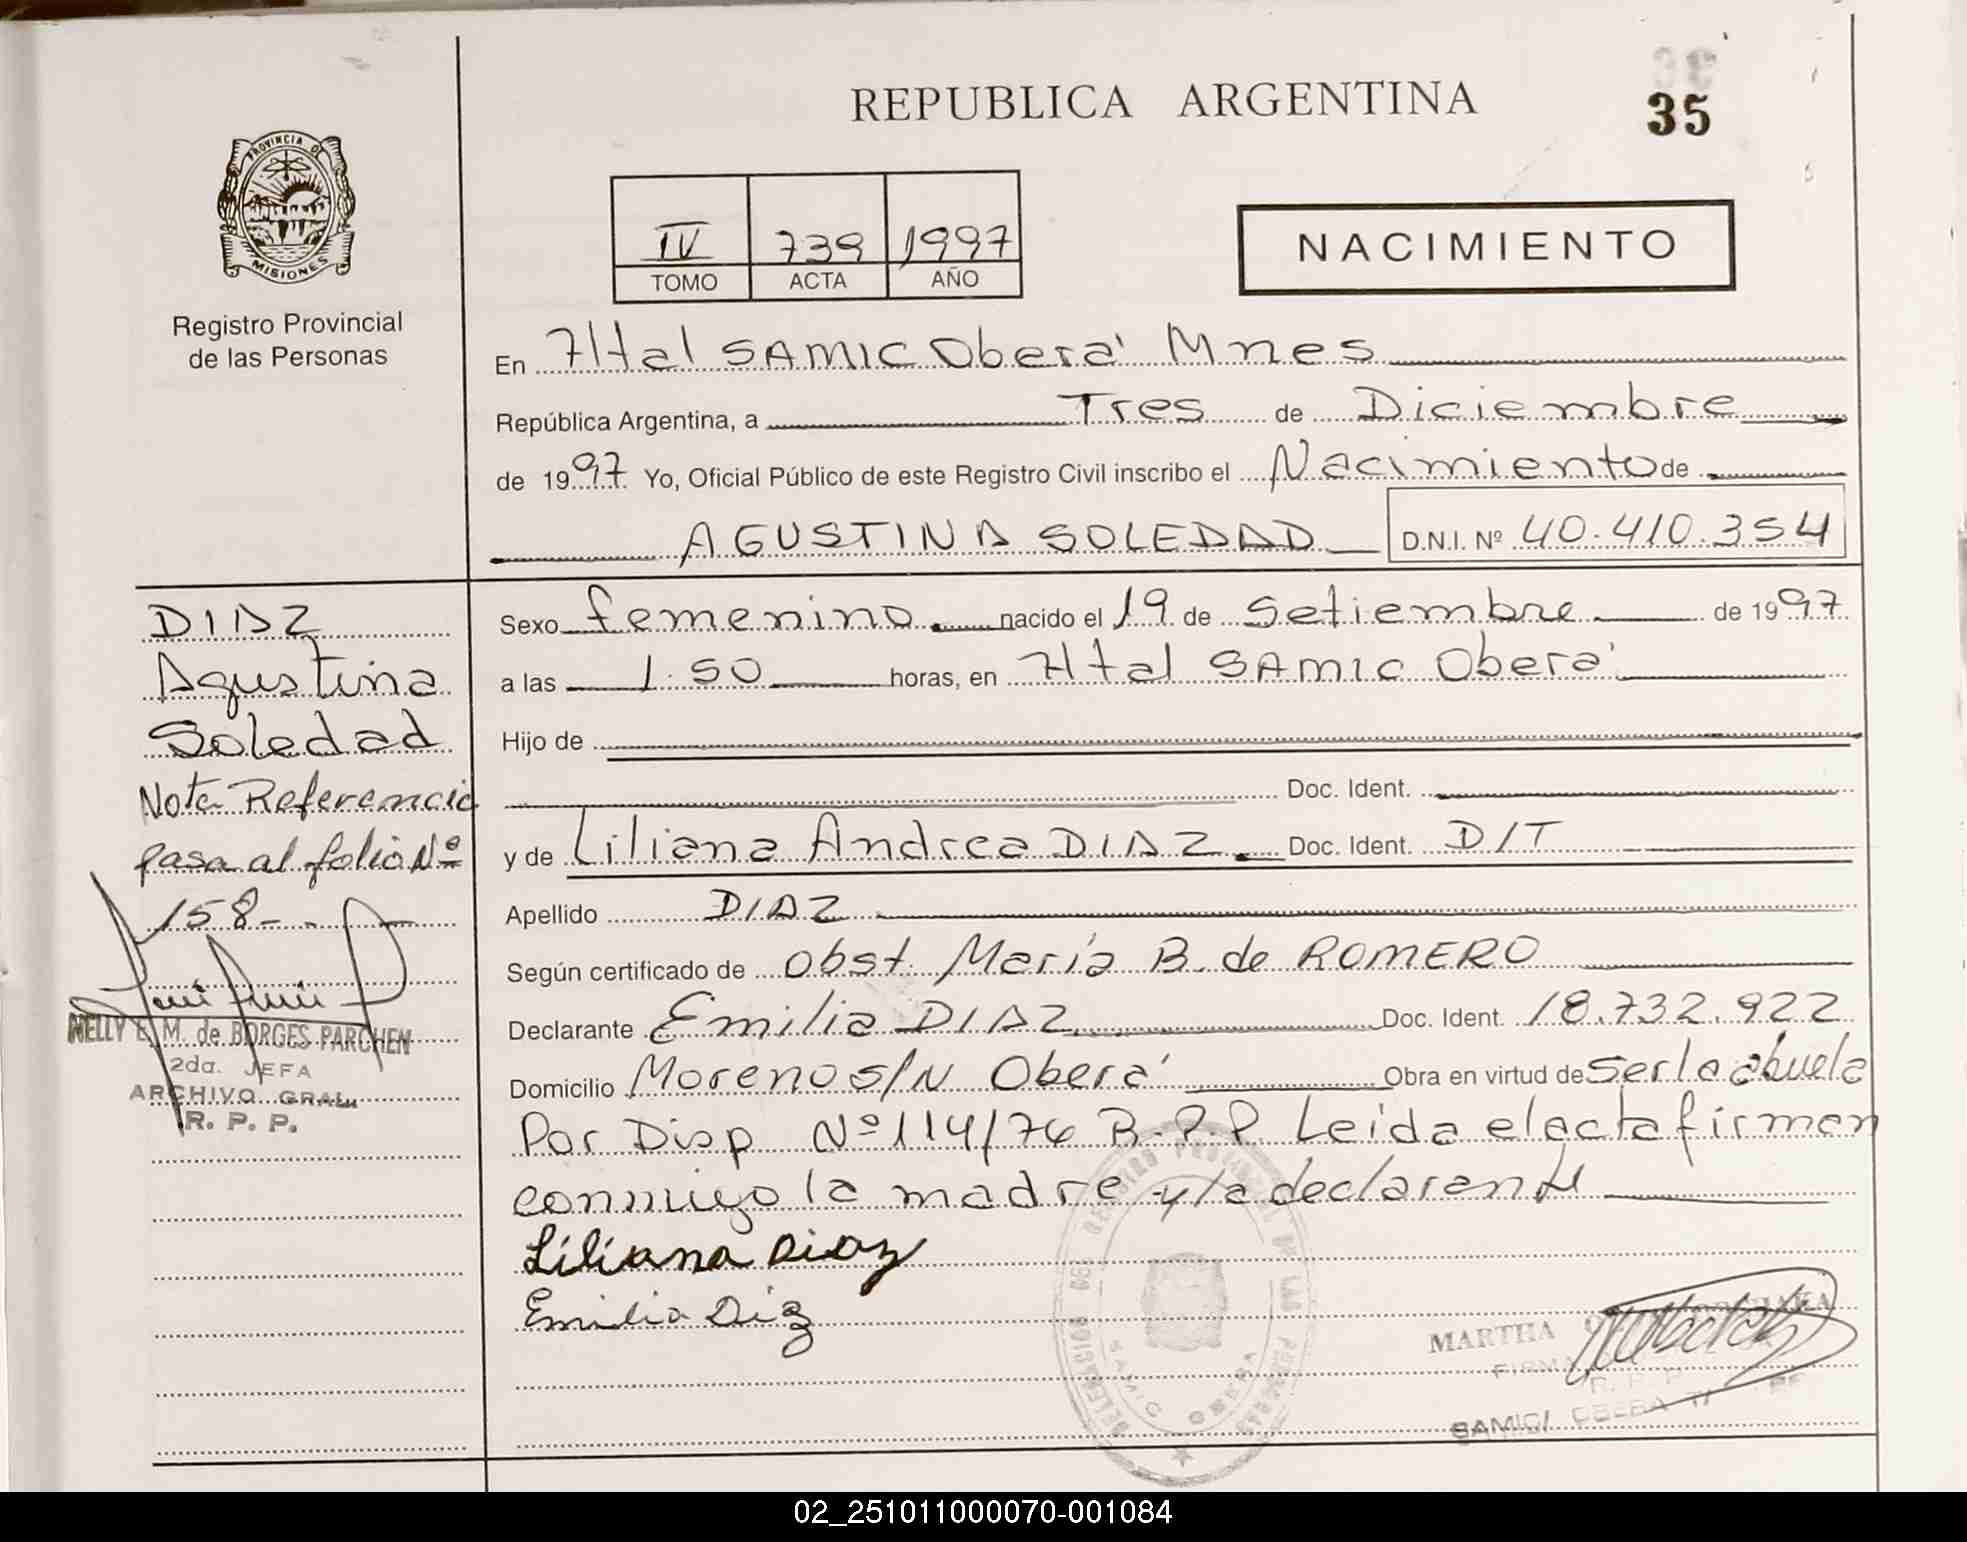 REPUBLICA ARGENTINA
35
PROVINCIA DE
MISIONES
Registro Provincial
de las Personas
IV 739 1997
TOMO ACTA AÑO
NACIMIENTO
En Htal SAMIC Oberá Mnes
República Argentina, a Tres de Diciembre
de 1997 Yo, Oficial Público de este Registro Civil inscribo el Nacimiento de
AGUSTINA SOLEDAD D.N.I. Nº 40.410.354
DIAZ
Agustina
Soledad
Nota Referencia
pasa al folio Nº
158
NELLY E. M. de BORGES PARCHEN
2da. JEFA
ARCHIVO GRAL.
R. P. P.
Sexo femenino nacido el 19 de Setiembre de 1997
a las 1.50 horas, en Htal SAMIC Oberá
Hijo de
Doc. Ident.
y de Liliana Andrea DIAZ Doc. Ident. D/T
Apellido DIAZ
Según certificado de Obst. María B. de ROMERO
Declarante Emilia DIAZ Doc. Ident. 18.732.922
Domicilio Moreno s/N Oberá Obra en virtud de Ser la abuela
Por Disp Nº 114/76 R.P.P. Leida el acta firman
conmigo la madre y la declarante
Liliana Diaz
Emilia Diz
DELEGACION DEL REGISTRO PROVINCIAL DE LAS PERSONAS
SAMIC OBERA
MARTHA
FIRMA
R. P. P.
SAMIC/ OBERA
02_251011000070-001084